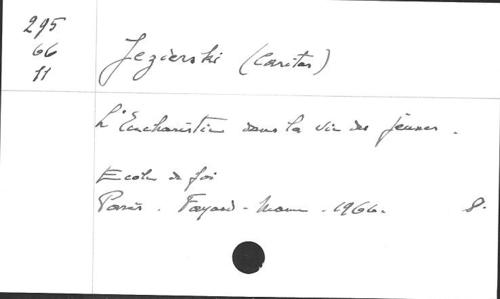 295
66
11
Jezierski (Caritas)
L'Eucharistie dans la vie des jeunes.
Ecole de foi
Paris. Fayard-Mame. 1966. 8.